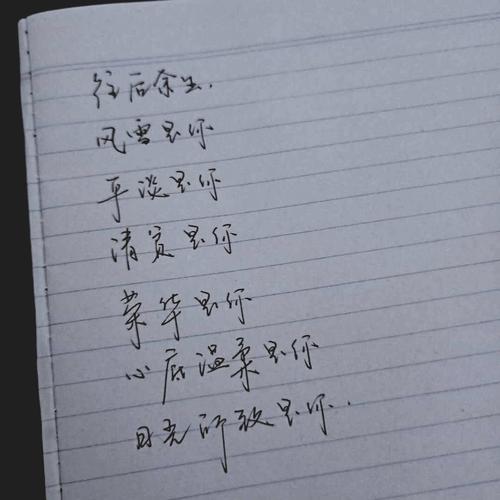 往后余生.
风雪是你
平淡是你
清贫是你
荣华是你
心底温柔是你
目光所致是你.